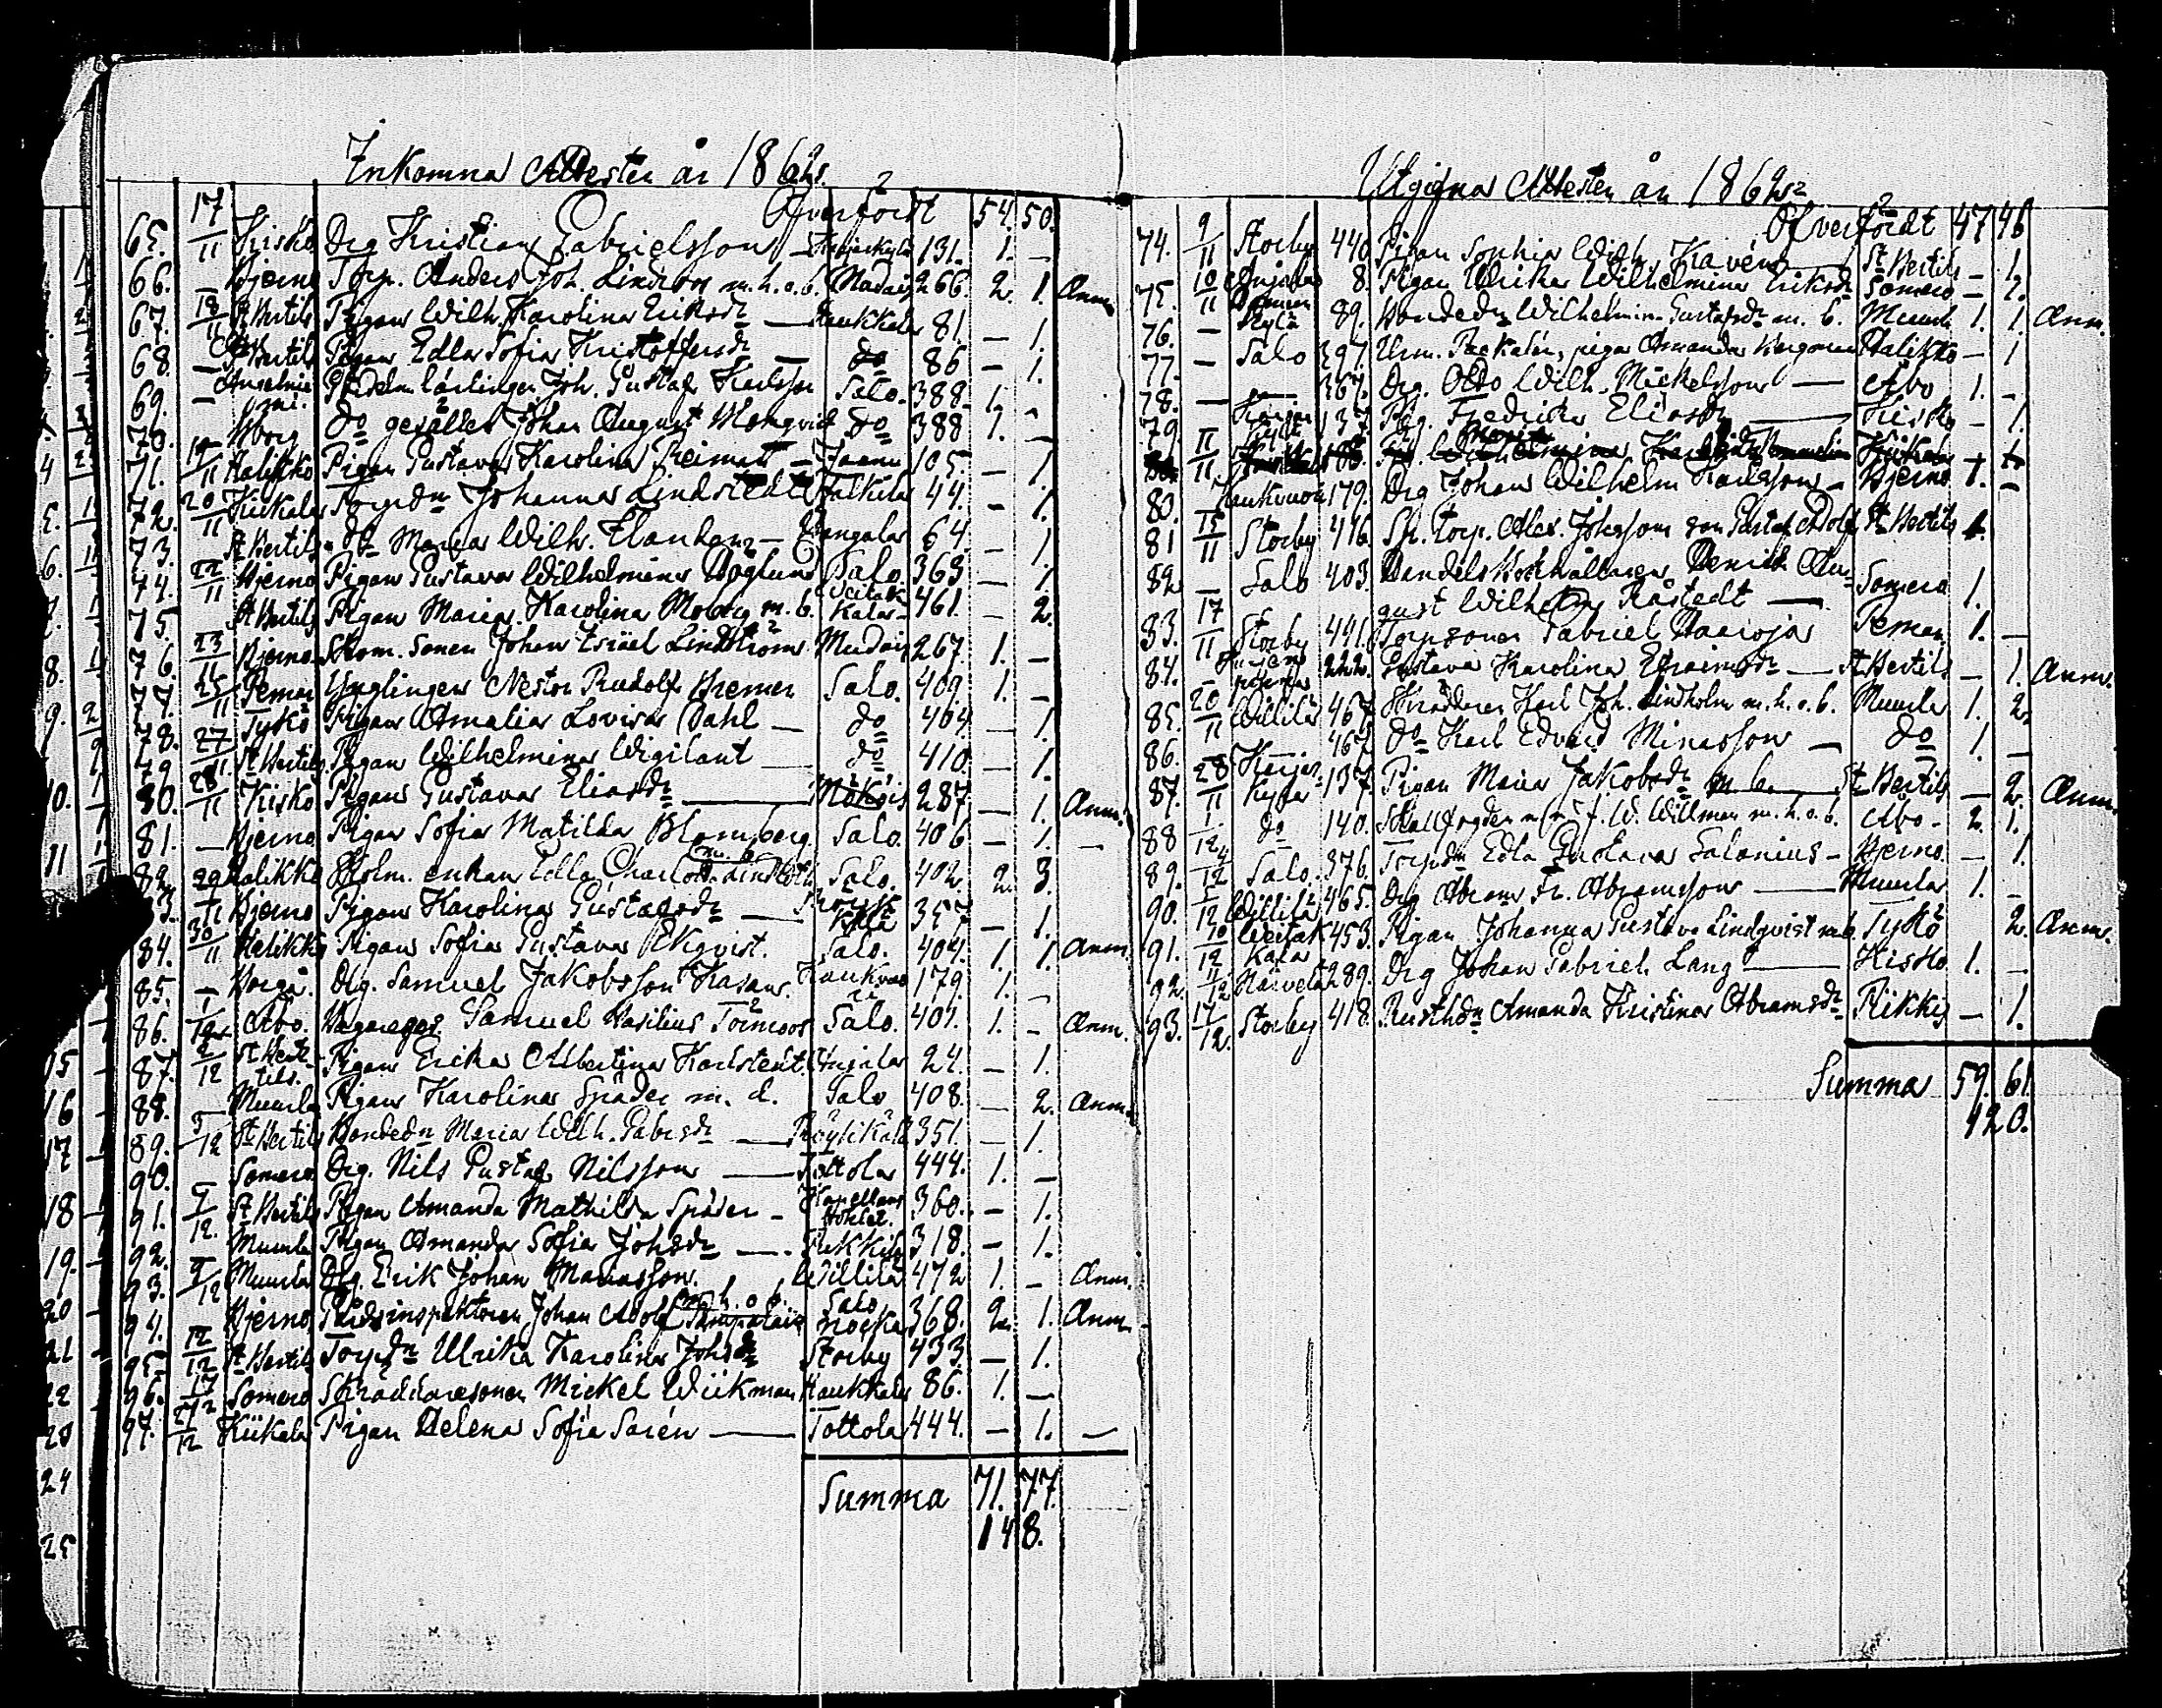 Inkomna Attester år 1862.
Öfverfördt 54. 50.
65. 17/11 Kisko Drg Kristian Gabrielsson — 131. 1. —
66. — Bjerno Torp. Anders Joh. Lindroos m. h. o. b. 266. 2. 1. Anm.
67. 18/11 St Bertils Pigan Wilh. Karolina Eriksdr — Haukkala 81. — 1.
68. — St Bertils Pigan Edla Sofia Kristoffersdr — do 86 — 1.
69. — Joh. Gustaf Karlsson Salo. 388. 1. -
70. do gesällen Johan August do 388 1. —
71. 19/11 Halikko Pigan Gustava Karolina Reimatt — 105. — 1.
72. 20/11 Kiikala Torpdn Johanna Lindstedt 44. - 1.
73. St Bertils do Maria Wilh. 64. — 1.
74. 22/11 Bjerno Pigan Gustava Wilhelmina Salo. 363 — 1
75. St Bertils Pigan Maria Karolina Moberg m. b. 461. — 2.
76. 23/11 Bjerno Skom. Sonen Johan Israel Lindström 267. 1. —
77. 25/11 Pemar Ynglingen Nestor Rudolf Bremer Salo. 409. 1. —
78. Tykö Pigan Amalia Lovisa Dahl — do 404. — 1.
79. 27/11 St Bertils Pigan Wilhelmina Wigilant — do 410. — 1.
80. 28/11 Kisko Pigan Gustava Eliasdr — 287 — 1. Anm.
81. — Bjerno Pigan Sofia Matilda Blomberg Salo. 406 — 1. —
82. 29 Halikko enkan Edla Charlotta m. b. Salo. 402. 2. 3.
11 Bjerno Pigan Karolina Gustafsdr — 357 — 1.
84. 30/11 Halikko Pigan Sofia Gustava Ekqvist. Salo. 404. 1. 1. Anm.
85. — Borgå. Drg. Samuel Jakobsson Kasanr. 179. 1. —
86. 1/12 Åbo. Samuel Basilius Salo. 401. 1. — Anm.
87. 2/12 St Bertils. Pigan Erika Albertina Karlstedt. 24. — 1.
88. — Muurla Pigan Karolina Späder m. d. Salo 408. — 2. Anm.
89. 3/12 St Bertils Bondedn Maria Wilh. Gabrsdr — 351. — 1.
90. — Somero Drg. Nils Gustaf Nilsson — Tottola 444. 1. —
91. 5/12. St Bertils Pigan Amanda Mathilda Späder — 360. — 1.
92. Muurla Pigan Amanda Sofia Johsdr — 318. — 1.
93. 9/12 Muurla Drg. Erik Johan Manasson. Willilä 472 1. — Anm.
94. Bjerno Johan Adolf m. h. o. b. Salo 368. 2. 1. Anm.
95. 12/12 St Bertils Torpdn Ulrika Karolina Johsdr Storby 433 — 1.
96. 17/12 Somero Skräddaresonen Mickel Wiikman Haukkala 86. 1. —
97. 27/12 Kiikala Pigan Helena Sofia Sarén — Tottola 444. — 1. —
Summa 71. 77.
148.
Utgifna Attester år 1862
Öfverfördt 47 46
74. 9/11 Storby 440 Pigan Sophia Wilh. Kavén — St Bertils — 1.
75. 10/11 Anjala 8. Pigan Ulrika Wilhelmina Eriksdr Somero — 1.
76. — Kylä 89. Bondedn Wilhelmina Gustafsdr m. b. Muurla 1. 1 Anm.
77. — Salo 397. pigan Amanda Bergman Halikko — 1
78. — 367. Drg. Otto Wilh. Mickelsson — Åbo 1. —
79. 137 Pig. Fredrika Eliasdr — Kisko — 1.
80. 179. Drg Johan Wilhelm Karlsson — Bjerno 1. —
81 15/11 Storby 416. Alex. Johsson son Gustaf Adolf St Bertils 1.
82 — Salo 403. Handels Bokhållaren Henrik Au-
gust Wilhelm Råstedt — Somero 1.
83. 17/11 Storby 441. Torpsonen Gabriel Haarоja Pemar 1. —
84. — 222. Gustava Karolina Efraimsdr — St Bertils — 1. Anm.
85. 20/11 Willilä 467 Skräddaren Karl Joh. Lindholm m. h. o. b. Muurla 1. 2.
86. — 467. do Karl Edvard Minasson — do 1. —
87. 28/11 137 Pigan Maria Jakobsdr m. b. — St Bertils — 2. Anm.
88 1/12 do 140. J. W. Willman m. h. o. b. Åbo. 2. 1.
89. 4/12 Salo. 376. Torpdn Edla Gustava Salonius — Bjerno — 1.
90. 5/12 Willilä 465. Drg Abram Fr. Abramsson — Muurla 1. —
91. 10/12 453. Pigan Johanna Gustava Lindqvist m b. Tykö 2. Anm.
92 11/12 289. Drg Johan Gabriel Lang — Kisko 1. —
93. 17/12. Storby 418. Rusthdn Amanda Kristina Abramsdr Piikkis — 1.
Summa 59. 61.
120.